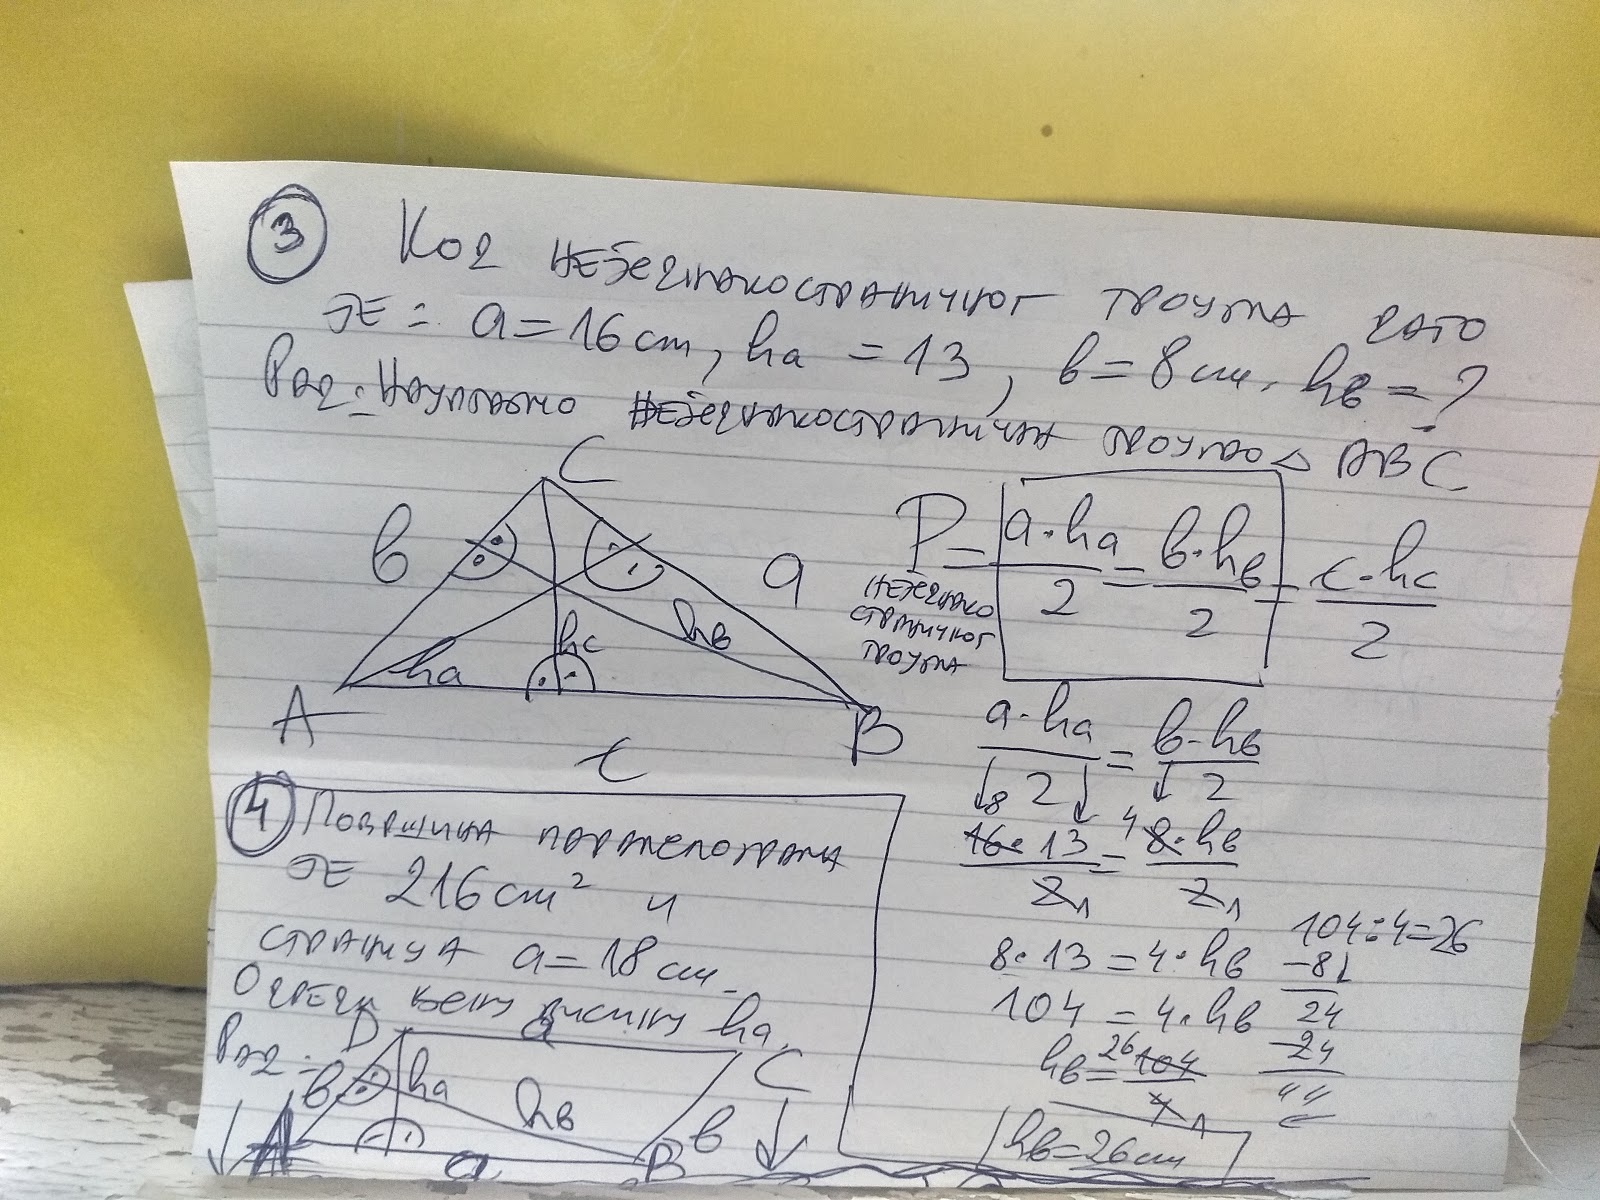 3 Код неједнакостраничног троугла дато
је: a=16cm, ha = 13, b=8cm, hb=?
Рад: Нацртамо неједнакостраничан троугао △ ABC
C
b
a
hc
hb
ha
A
B
c
P = a·ha/2 = b·hb/2 = c·hc/2
неједнако
страничног
троугла
a·ha/2 = b·hb/2
8 4
16·13/2 1 = 8·hb/2 1
8·13=4·hb
104=4·hb
hb= 26 104/4 1
hb=26cm
104:4=26
-8↓
24
-24
4 Површина паралелограма
је 216cm² и
страница a=18cm.
Одреди њену висину ha.
Рад:
D
a
C
b
ha
hb
b
A
a
B